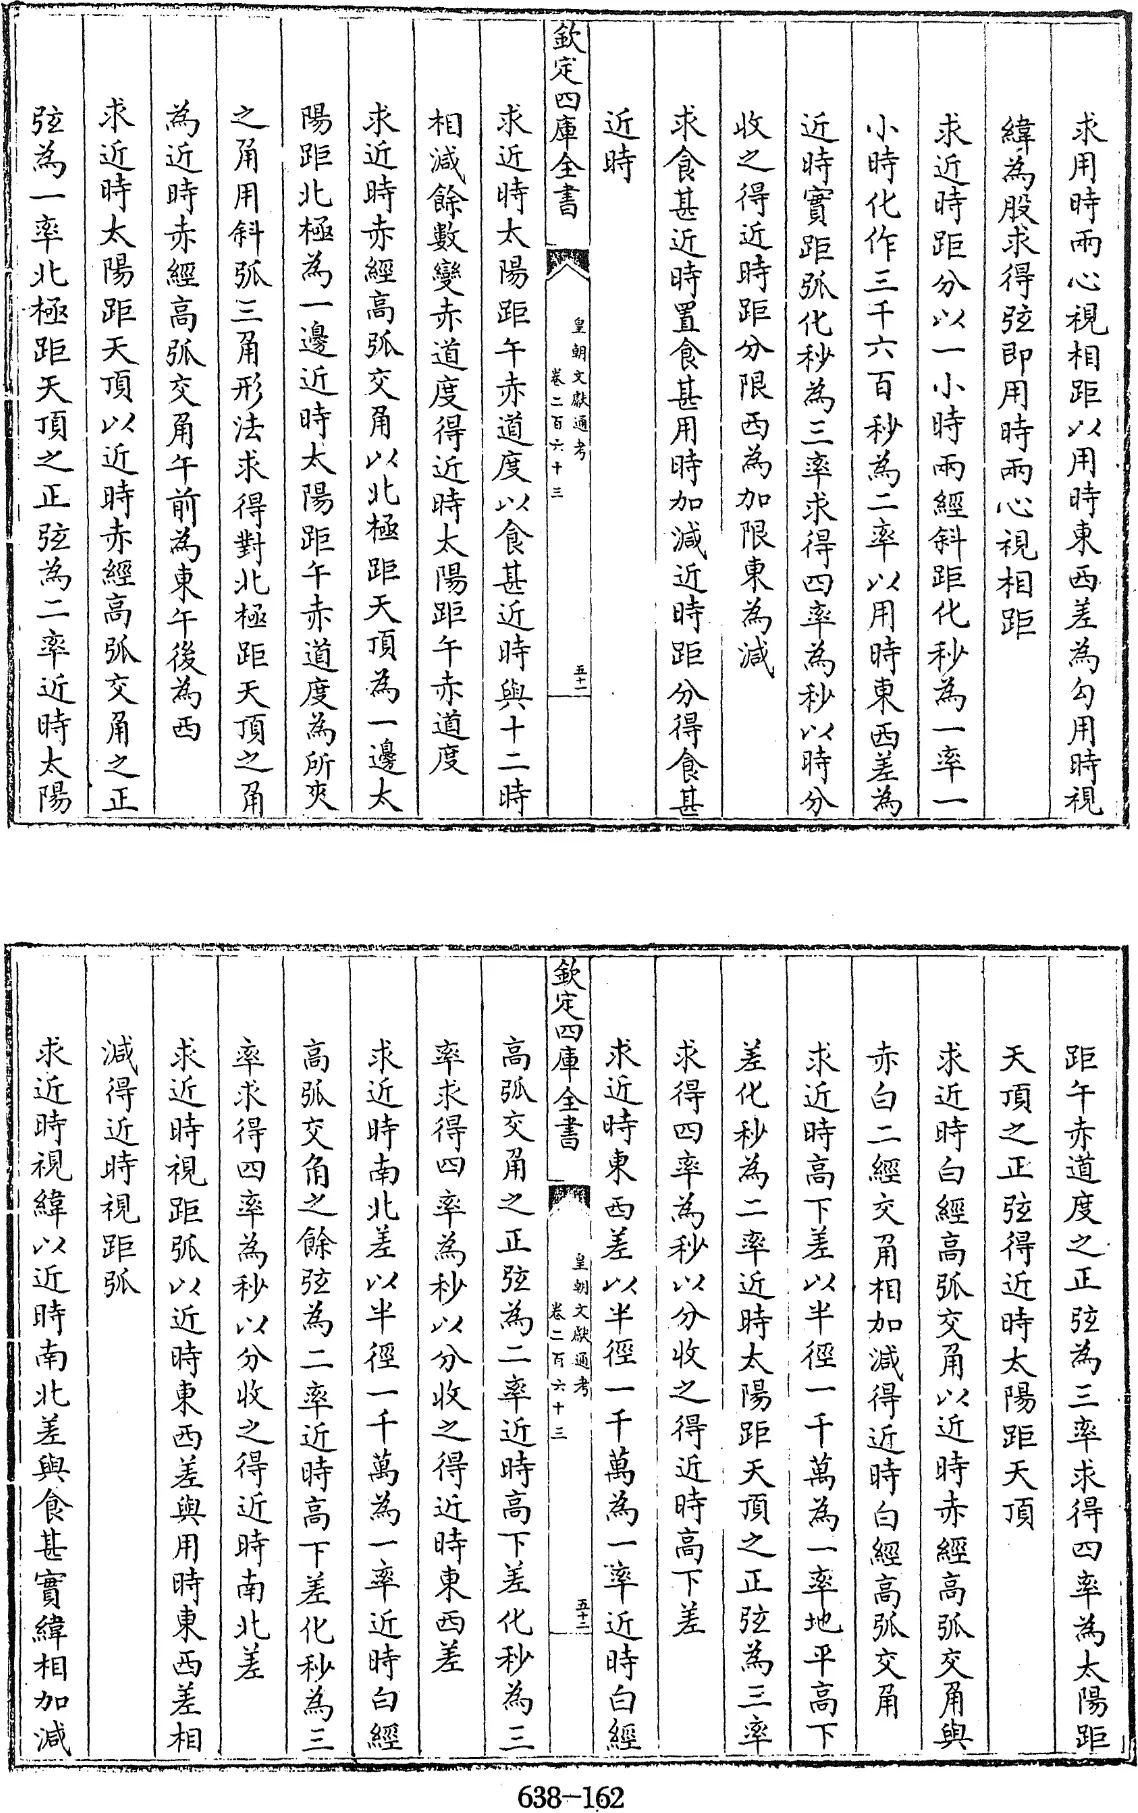 求用時兩心視相距以用時東西差為勾用時視
緯為股求得弦即用時兩心視相距
求近時距分以一小時兩經斜距化秒為一率一
小時化作三千六百秒為二率以用時東西差為
近時實距弧化秒為三率求得四率為秒以時分
收之得近時距分限西為加限東為減
求食甚近時置食甚用時加減近時距分得食甚
近時
欽定四庫全書
皇朝文獻通考
卷二百六十三
五十二
求近時太陽距午赤道度以食甚近時與十二時
相減餘數變赤道度得近時太陽距午赤道度
求近時赤經高弧交角以北極距天頂為一邊太
陽距北極為一邊近時太陽距午赤道度為所夾
之角用斜弧三角形法求得對北極距天頂之角
為近時赤經高弧交角午前為東午後為西
求近時太陽距天頂以近時赤經高弧交角之正
弦為一率北極距天頂之正弦為二率近時太陽
距午赤道度之正弦為三率求得四率為太陽距
天頂之正弦得近時太陽距天頂
求近時白經高弧交角以近時赤經高弧交角與
赤白二經交角相加減得近時白經高弧交角
求近時高下差以半徑一千萬為一率地平高下
差化秒為二率近時太陽距天頂之正弦為三率
求得四率為秒以分收之得近時高下差
求近時東西差以半徑一千萬為一率近時白經
欽定四庫全書
皇朝文獻通考
卷二百六十三
五十三
高弧交角之正弦為二率近時高下差化秒為三
率求得四率為秒以分收之得近時東西差
求近時南北差以半徑一千萬為一率近時白經
高弧交角之餘弦為二率近時高下差化秒為三
率求得四率為秒以分收之得近時南北差
求近時視距弧以近時東西差與用時東西差相
減得近時視距弧
求近時視緯以近時南北差與食甚實緯相加減
638-162